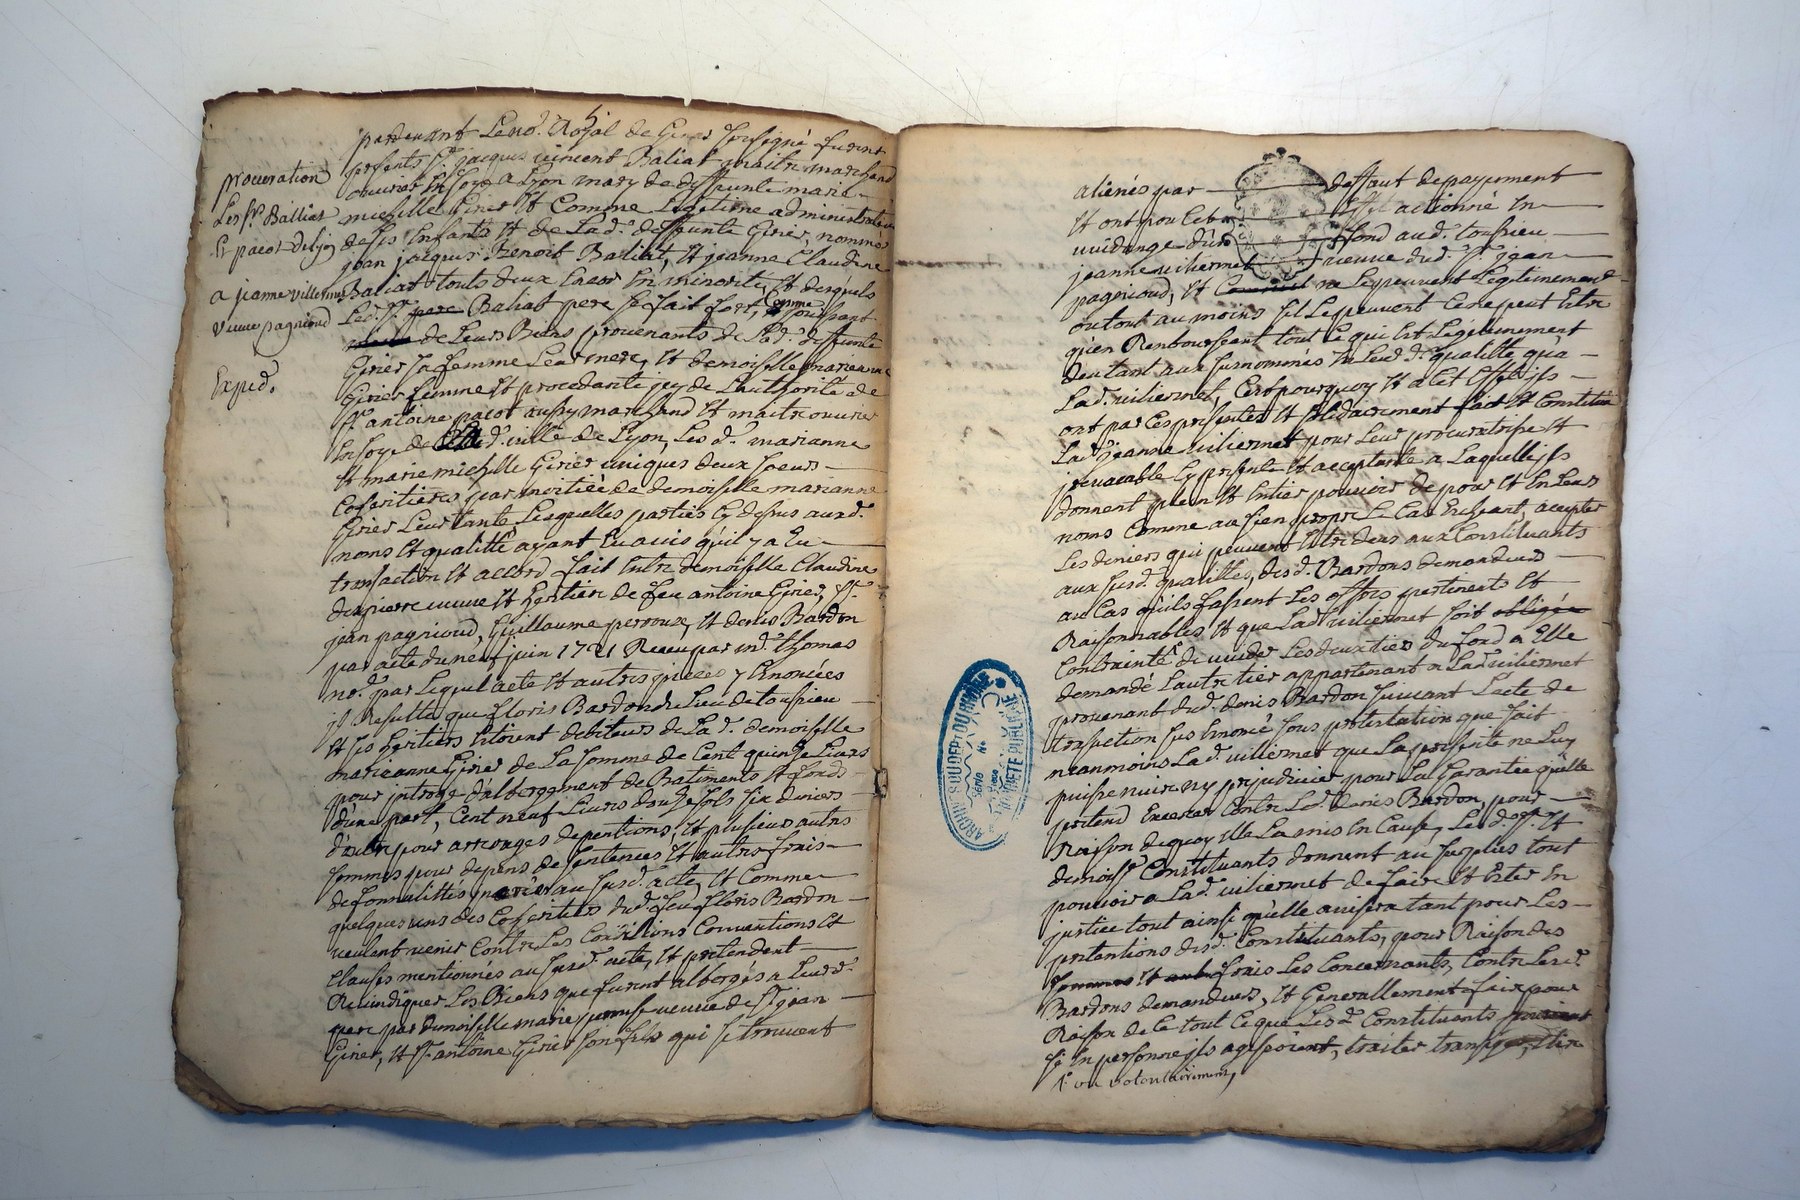 procuration
Les Srs Balliat
Et pacot de Lyon
a jeanne villermet
veuve pagnioud
Exped.
5
pardevant Le no.re Royal de Givors soussigné furent
présents Sr. jacques vincent Baliat maitre marchand
ouvrier En soye a Lyon mary de deffunte marie
michelle Girier Et Comme Legitime administrateur
de ses Enfants Et de Lad. deffunte Girier, nommés
jean jacques Benoit Baliat, Et jeanne Claudine
Baliat touts deux Encor En minorité, Et desquels
Led. Sr. pere Baliat pere se fait fort, Comme jouissant
de Leurs Biens provenants de Lad. deffunte
Girier sa femme Leur mere, Et demoiselle marianne
Girier femme Et procedante jcy de L'authorité de
Sr. antoine pacot aussy marchand Et maitre ouvrier
En soye de lad. ville de Lyon, Les d. marianne
Et marie michelle Girier uniques deux soeurs
Coheritieres par moitiée de demoiselle marianne
Girier Leur tante, Lesquelles parties Cy dessus auxd.
noms Et qualitté ayant Eu avis qu'il y a Eu
transaction Et accord fait Entre demoiselle Claudine
dupierre veuve Et heritiere de feu antoine Girier, Sr.
jean pagnioud, Guillaume perroux, Et denis Bardon
par acte du neuf juin 1721 Receu par me. Thomas
no.re par Lequel acte Et autres pieces y Enoncées
jl Resulte que floris Bardon du Lieu de toussieu
Et ses heritiers Estoient debiteurs de La d. demoiselle
marianne Girier de La somme de Cent quinze Livres
pour jntroge d'albergement de Batiments Et fonds
d'une part, Cent neuf Livres douze sols six deniers
d'autre pour arrerages de pentions, Et plusieurs autres
sommes pour depens de sentences Et autres frais
de formalittés jnserées au susd. acte, Et Comme
quelques uns des Coheritiers dud. feu floris Bardon
veulent venir Contre Les Conditions Conventions Et
Clauses mentionnés au susd. acte, Et pretendent
Revindiquer Les Biens que furent albergés a Leurd.
pere par demoiselle marie veuve de Sr. jean
Girier, Et Sr. antoine Girier son fils qui se trouvent
alienés par deffaut de payement
Et ont pour Cet Effet actionné En
vuidange d'un fond aud. toussieu
jeanne villermet veuve dud. Sr. jean
pagnioud, Et ne Le peuvent Legitimement
ou tout au moins s'il Le peuvent Ce ne peut Estre
qu'en Remboursant tout Ce qui Est Legitimement
deu tant aux susnommés En Leurd. qualitté qu'a
Lad. villermet, C'est pourquoy Et a Cet Effet jls
ont par Ces presentes Et solidairement fait Et Constitué
Lad. jeanne villermet pour Leur procuratrice Et
jrrevocable Cy presente Et acceptante a Laquelle jls
donnent plein Et Entier pouvoir de pour Et En Leurs
noms Comme au sien propre Le Cas Echeant, accepter
Les deniers qui peuvent Estre deus aux Constituants
aux susd. qualittés, des d. Bardons demandeurs
au Cas qu'ils fassent Les offres pertinents Et
Raisonnables Et que Lad. villermet soit obligée
Contrainte de vuider Les deux tiers du fond a Elle
demandé L'autre tier appartenant a Lad. villermet
provenant dud. denis Bardon suivant L'acte de
transaction sus Enoncé sous protestation que fait
neanmoins Lad. villermet que La presente ne Luy
puisse nuire ny prejudicier pour La Garantie qu'elle
pretend Exercer Contre Led. denis Bardon, pour
Raison de quoy Elle La mis En Cause, Les d. Sr. Et
demois.le Constituants donnent au surplus tout
pouvoir a Lad. villermet de faire Et Ester En
justice tout ainsi qu'elle avisera tant pour Les
pretentions desd. Constituants, pour Raison des
sommes Et frais Les Concernants, Contre Les d.
Bardons demandeurs, Et Generallement faire pour
Raison de Ce tout Ce que Les d. Constituants
sy En personne jls agissoient, traiter transiger, Elire
1.° ou volontairement,
ARCHIVES DU DEPT DU RHONE
PROPRIETE PUBLIQUE